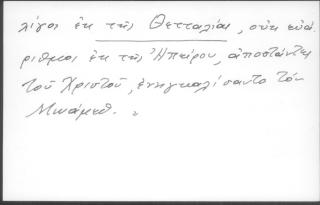 λίγοι ἐκ τῆς Θετταλίας, οὐκ εὐά
ριθμοι ἐκ τῆς Ἠπείρου, ἀποστάντες
τοῦ Χριστοῦ, ἐνηγκαλίσαντο τὸν
Μωάμεθ.